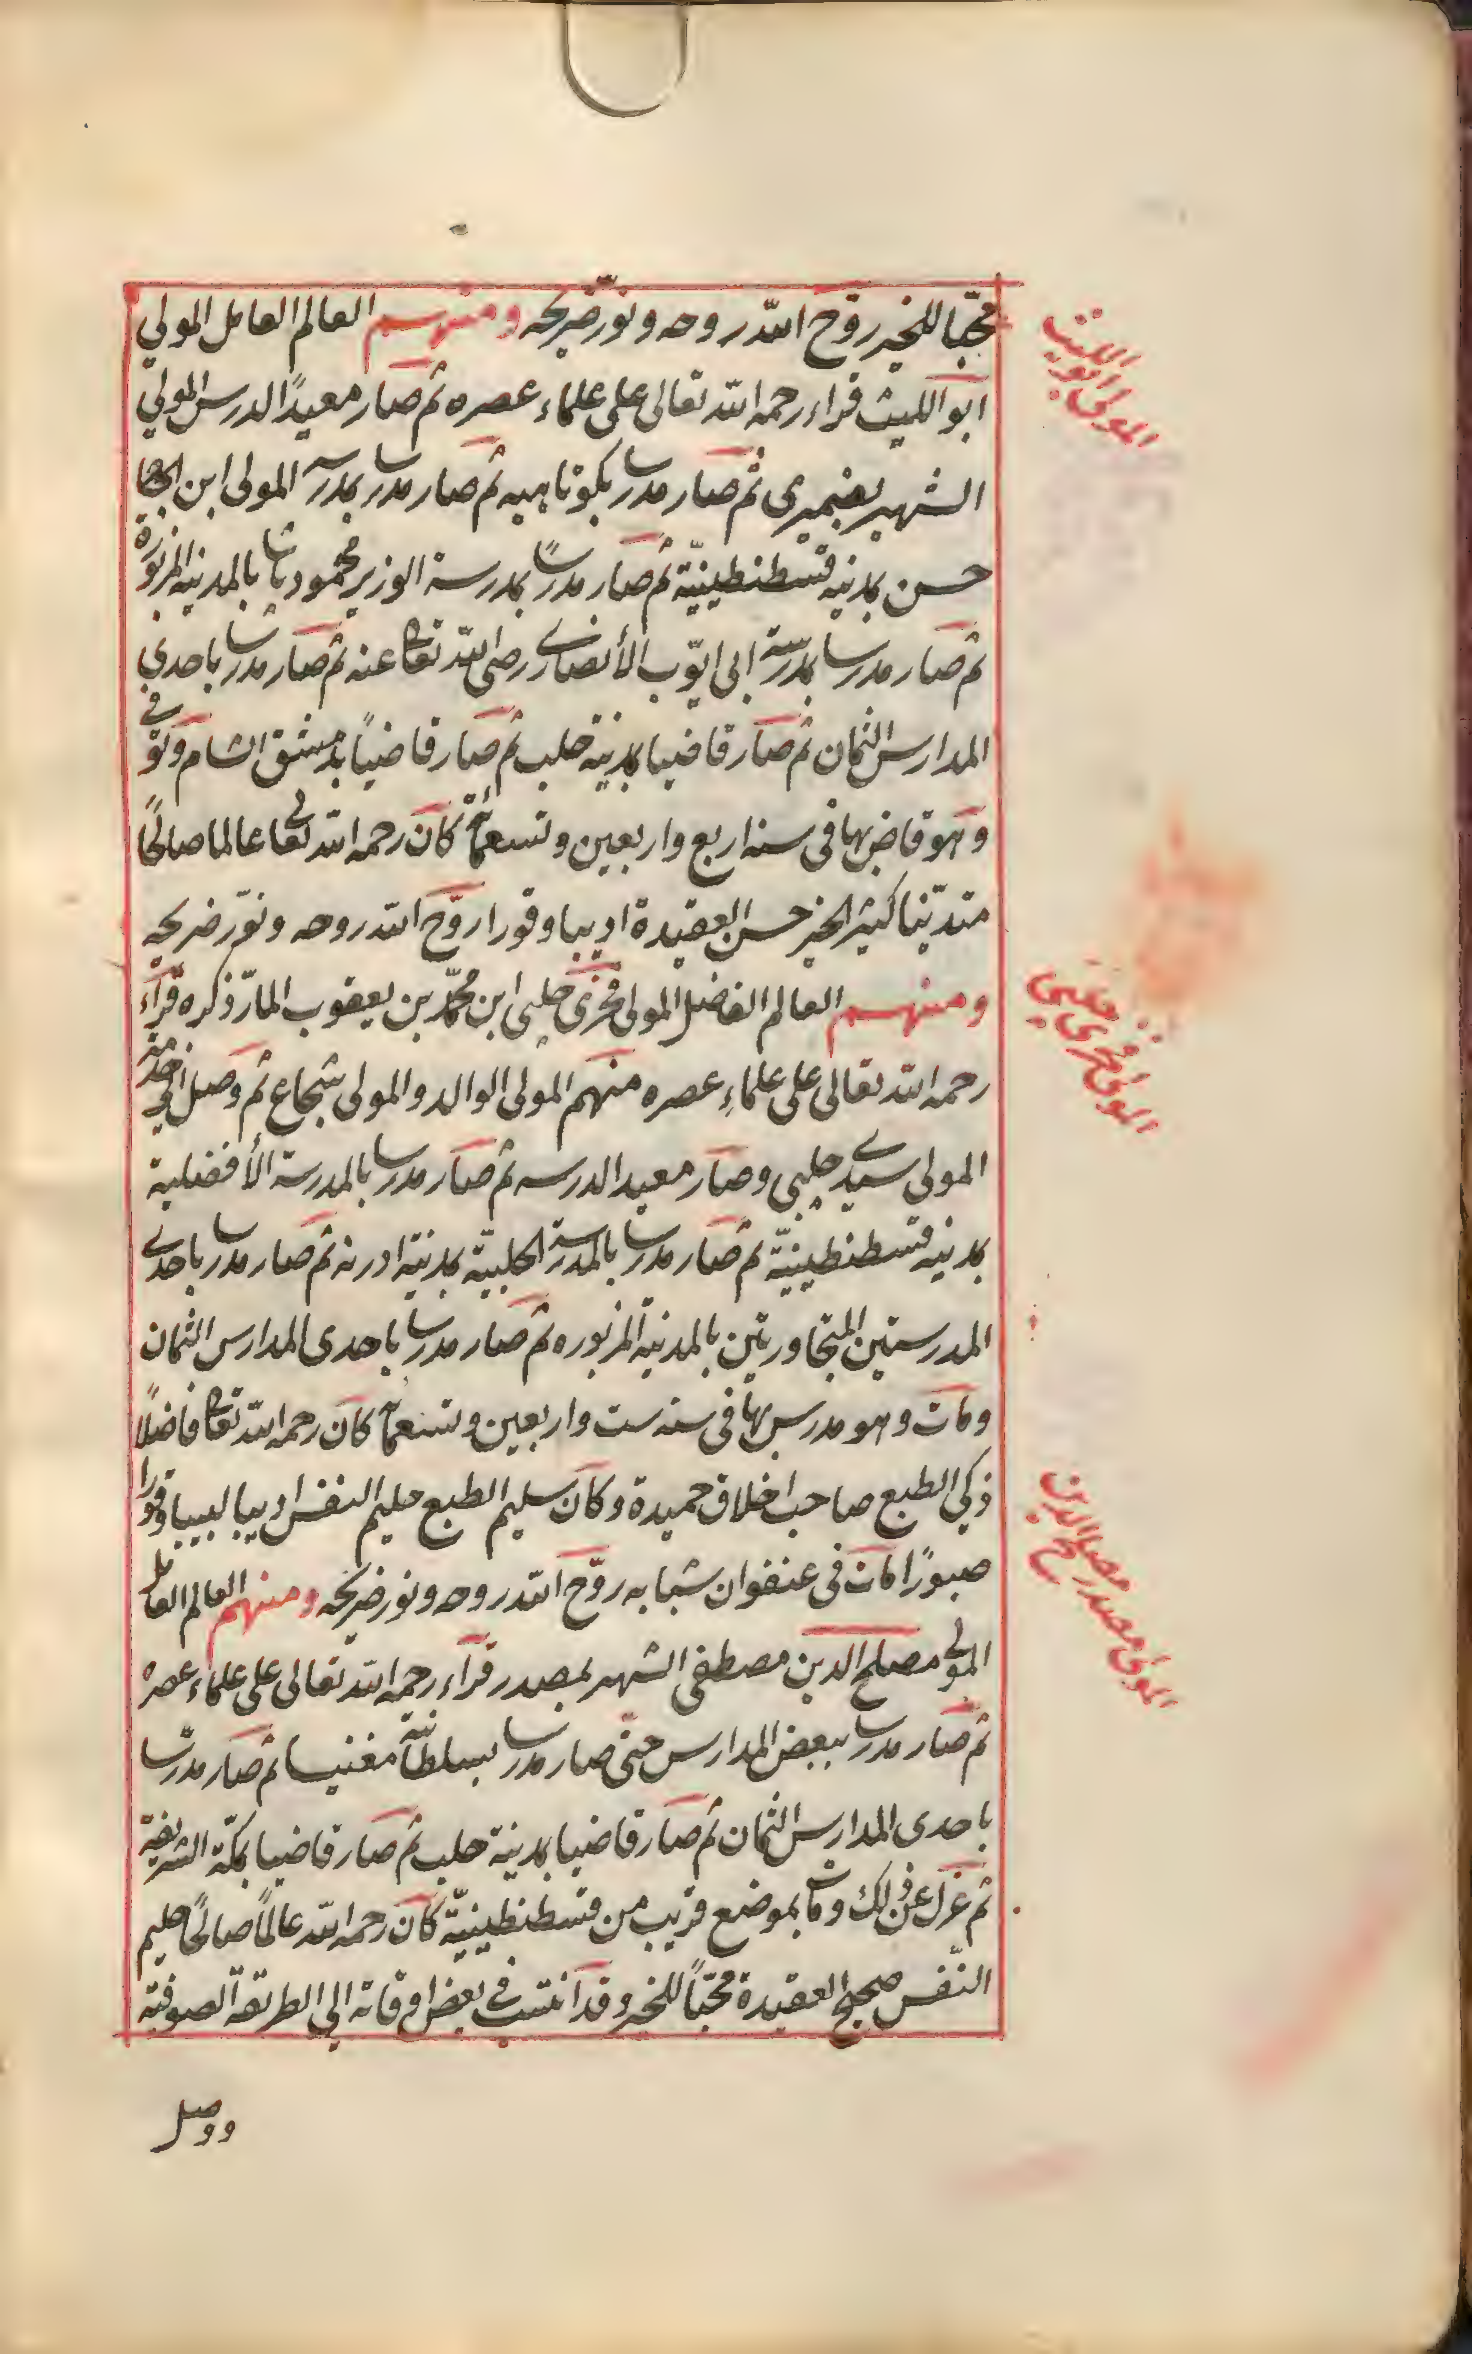 محبّا للخير روّح الله روحه ونوّر ضريحه ومنهم العالم العامل المولي
المولى ابو الليث
ابو الليث قراء رحمه الله تعالى على علماء عصره ثم صار معيدًا لدرس المولي
الشهير بضميرى ثم صار مدرسا بكوتاهيه ثم صار مدرسا بمدرسة المولى ابن الحاج
حسن بمدينه قسطنطينيّة ثم صار مدرسًا بمدرسة الوزير محمود پاشا بالمدينه المزبورة
ثم صار مدرسا بمدرسة ابى ايّوب الأنصارى رضى الله تعالى عنه ثم صار مدرسا باحدي
المدارس الثمان ثم صار قاضيا بمدينة حلب ثم صار قاضيًا بدمشق الشام وتوفي
وهو قاض بها فى سنه اربع واربعين وتسعمائة كان رحمه الله تعالى عالما صالحًا
متديّنا كثير الخير حسن العقيدة اديبا وقورا روّح الله روحه ونوّر ضريحه
ومنهم العالم الفاضل المولى فخرى چلبى ابن محمّد بن يعقوب المارّ ذكره قرآء
المولى فخرى چلبي
رحمه الله تعالى على علماءِ عصره منهم المولى الوالد والمولى شجاع ثم وصل الى خدمة
المولى سيدى چلبي وصار معيدا لدرسه ثم صار مدرسا بالمدرسة الأفضلية
بمدينه قسطنطينيّة ثم صار مدرسا بالمدرسة الحلبيّة بمدينة ادرنه ثم صار مدرسا باحدى
المدرستين المتجاورتين بالمدينة المزبوره ثم صار مدرسا باحدى المدارس الثمان
ومات وهو مدرس بها فى سنه ست واربعين وتسعمائة كان رحمه الله تعالى فاضلًا
ذكي الطبع صاحب اخلاق حميدة وكان سليم الطبع حليم النفس اديبا لبيبا وقورا
صبورًا مات فى عنفوان شبابه روّح الله روحه ونور ضريحه ومنهم العالم العامل
المولى مصدر مصلح الدين
المولى مصلح الدين مصطفى الشهير بمصدر قرآء رحمه الله تعالى على علماء عصره
ثم صار مدرسا ببعض المدارس حتى صار مدرسا بسلطانية مغنيسا ثم صار مدرّسا
باحدى المدارس الثمان ثم صار قاضيا بمدينة حلب ثم صار قاضيا بمكّة الشريفة
ثم عزل عن ذلك ومات بموضع قريب من قسطنطينيّة كان رحمه الله عالمًا صالحًا حليم
النّفس صحيح العقيدة محبّاً للخير وقد انتسب في بعض اوقاته الى الطريقة الصوفية
ووصل